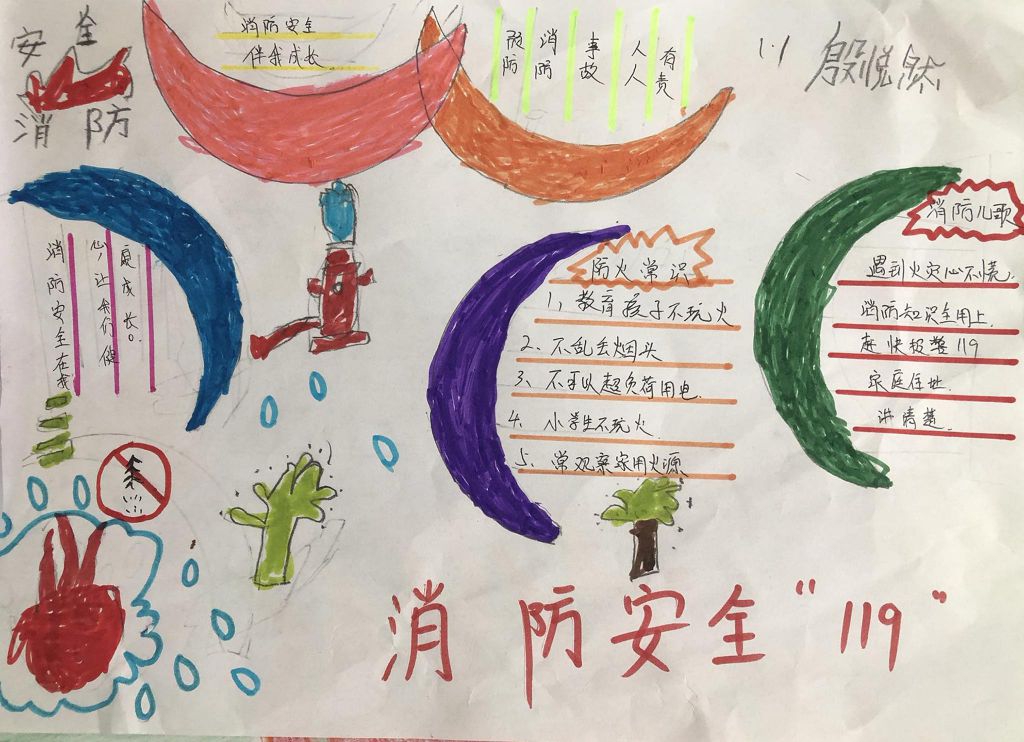 安全
消防
消防安全
伴我成长
预防
消防
事故
人人
有责
殷悦然
消防安全在我
心,让我们健
康成长。
防火常识
1、教育孩子不玩火
2、不乱丢烟头
3、不可以超负荷用电
4、小学生不玩火
5、常观察家用火源
消防儿歌
遇到火灾心不慌.
消防知识全用上.
赶快报警119
家庭住址.
讲清楚.
消防安全“119”